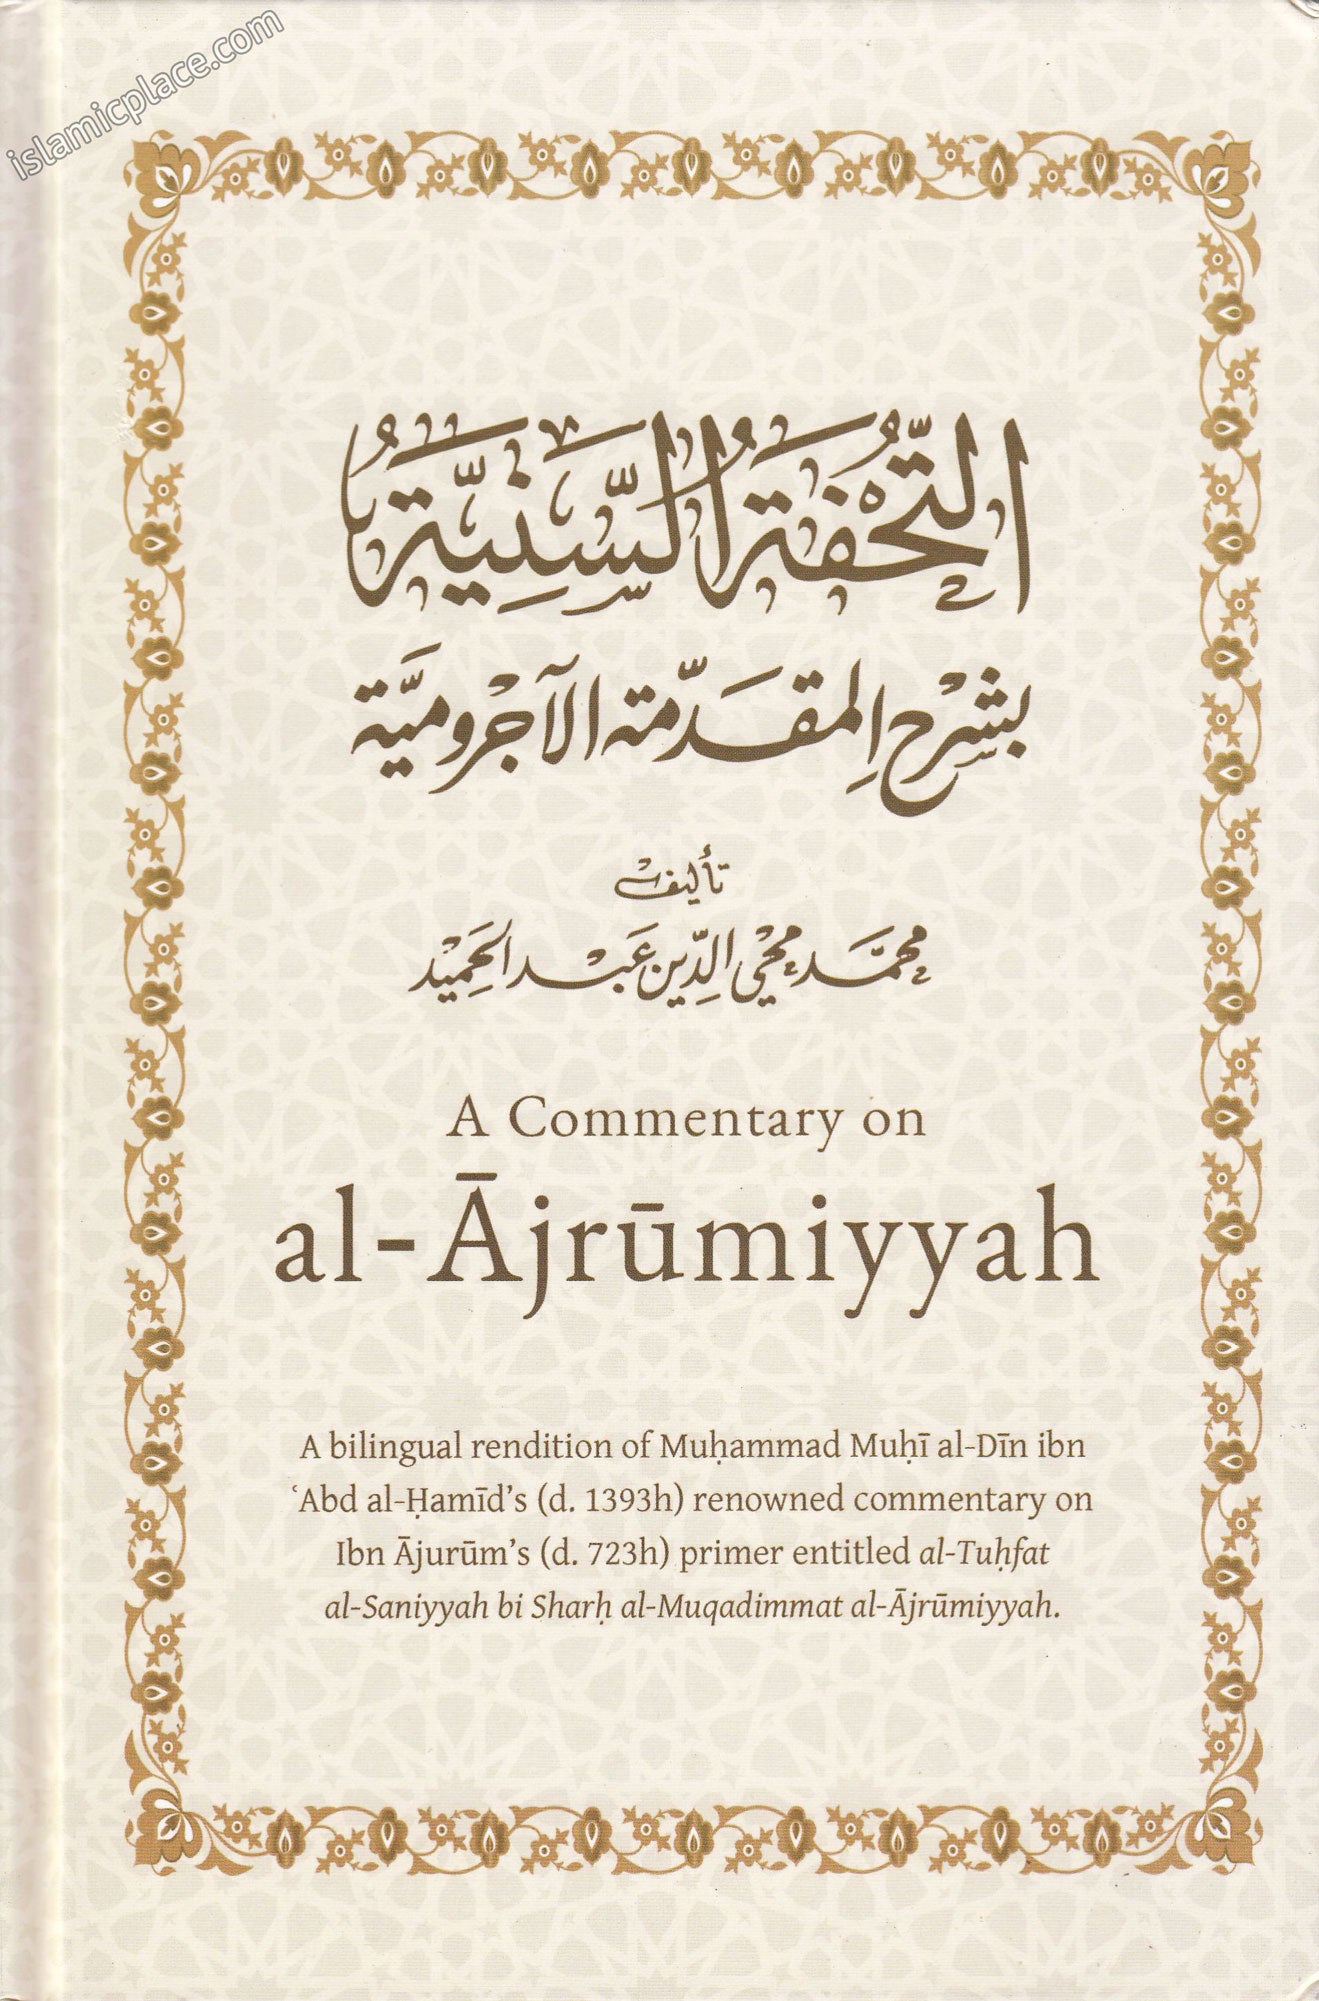 islamicplace.com
التُّحْفَةُ السَّنِيَّةُ
بشرح المقدّمة الآجروميّة
تأليف
محمّد محيي الدّين عبد الحميد
A Commentary on
al-Ājrūmiyyah
A bilingual rendition of Muḥammad Muḥī al-Dīn ibn
ʿAbd al-Ḥamīd’s (d. 1393h) renowned commentary on
Ibn Ājurūm’s (d. 723h) primer entitled al-Tuḥfat
al-Saniyyah bi Sharḥ al-Muqadimmat al-Ājrūmiyyah.